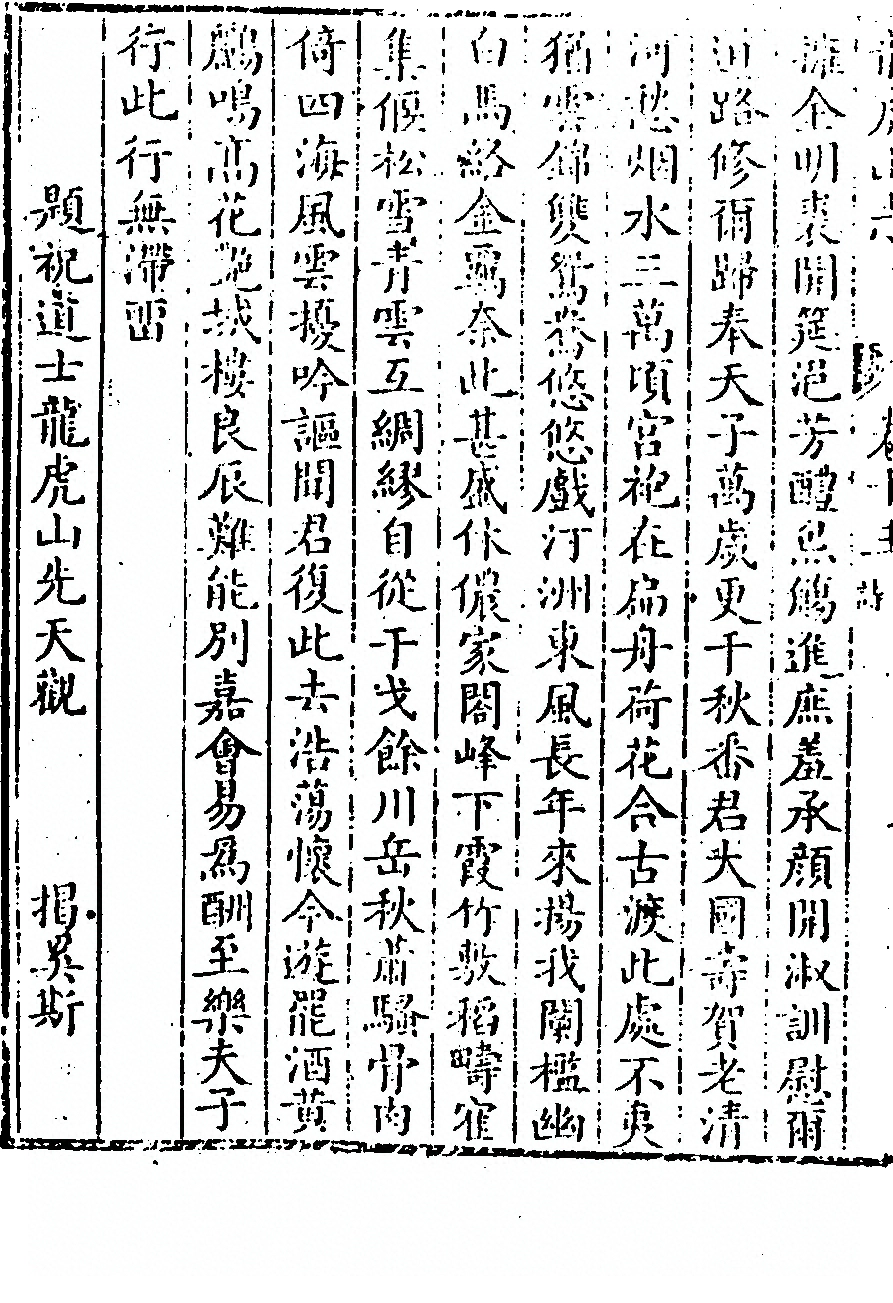 龍虎山志 卷十五 詩
擁全明裏開筵浥芳醴魚觴進庶羞承顏開淑訓慰爾
逈路修爾歸奉天子萬歲更千秋番君大國壽賀老清
河愁烟水三萬頃宮袍在扁舟荷花合古渡此處不夷
猶雲錦雙鴛鴦悠悠戲汀洲東風長年來揚我闌檻幽
白馬絡金羈奈此甚盛休儂家閣峰下霞竹敷稻疇寉
集偃松雪青雲互綢繆自從干戈餘川岳秋蕭騷骨肉
倚四海風雲擾吟謳聞君復此去浩蕩懷今遊罷酒黃
鸝鳴高花艷城樓良辰難能別嘉會易爲酬至樂夫子
行此行無滯畱
題祝道士龍虎山先天觀 揭奚斯